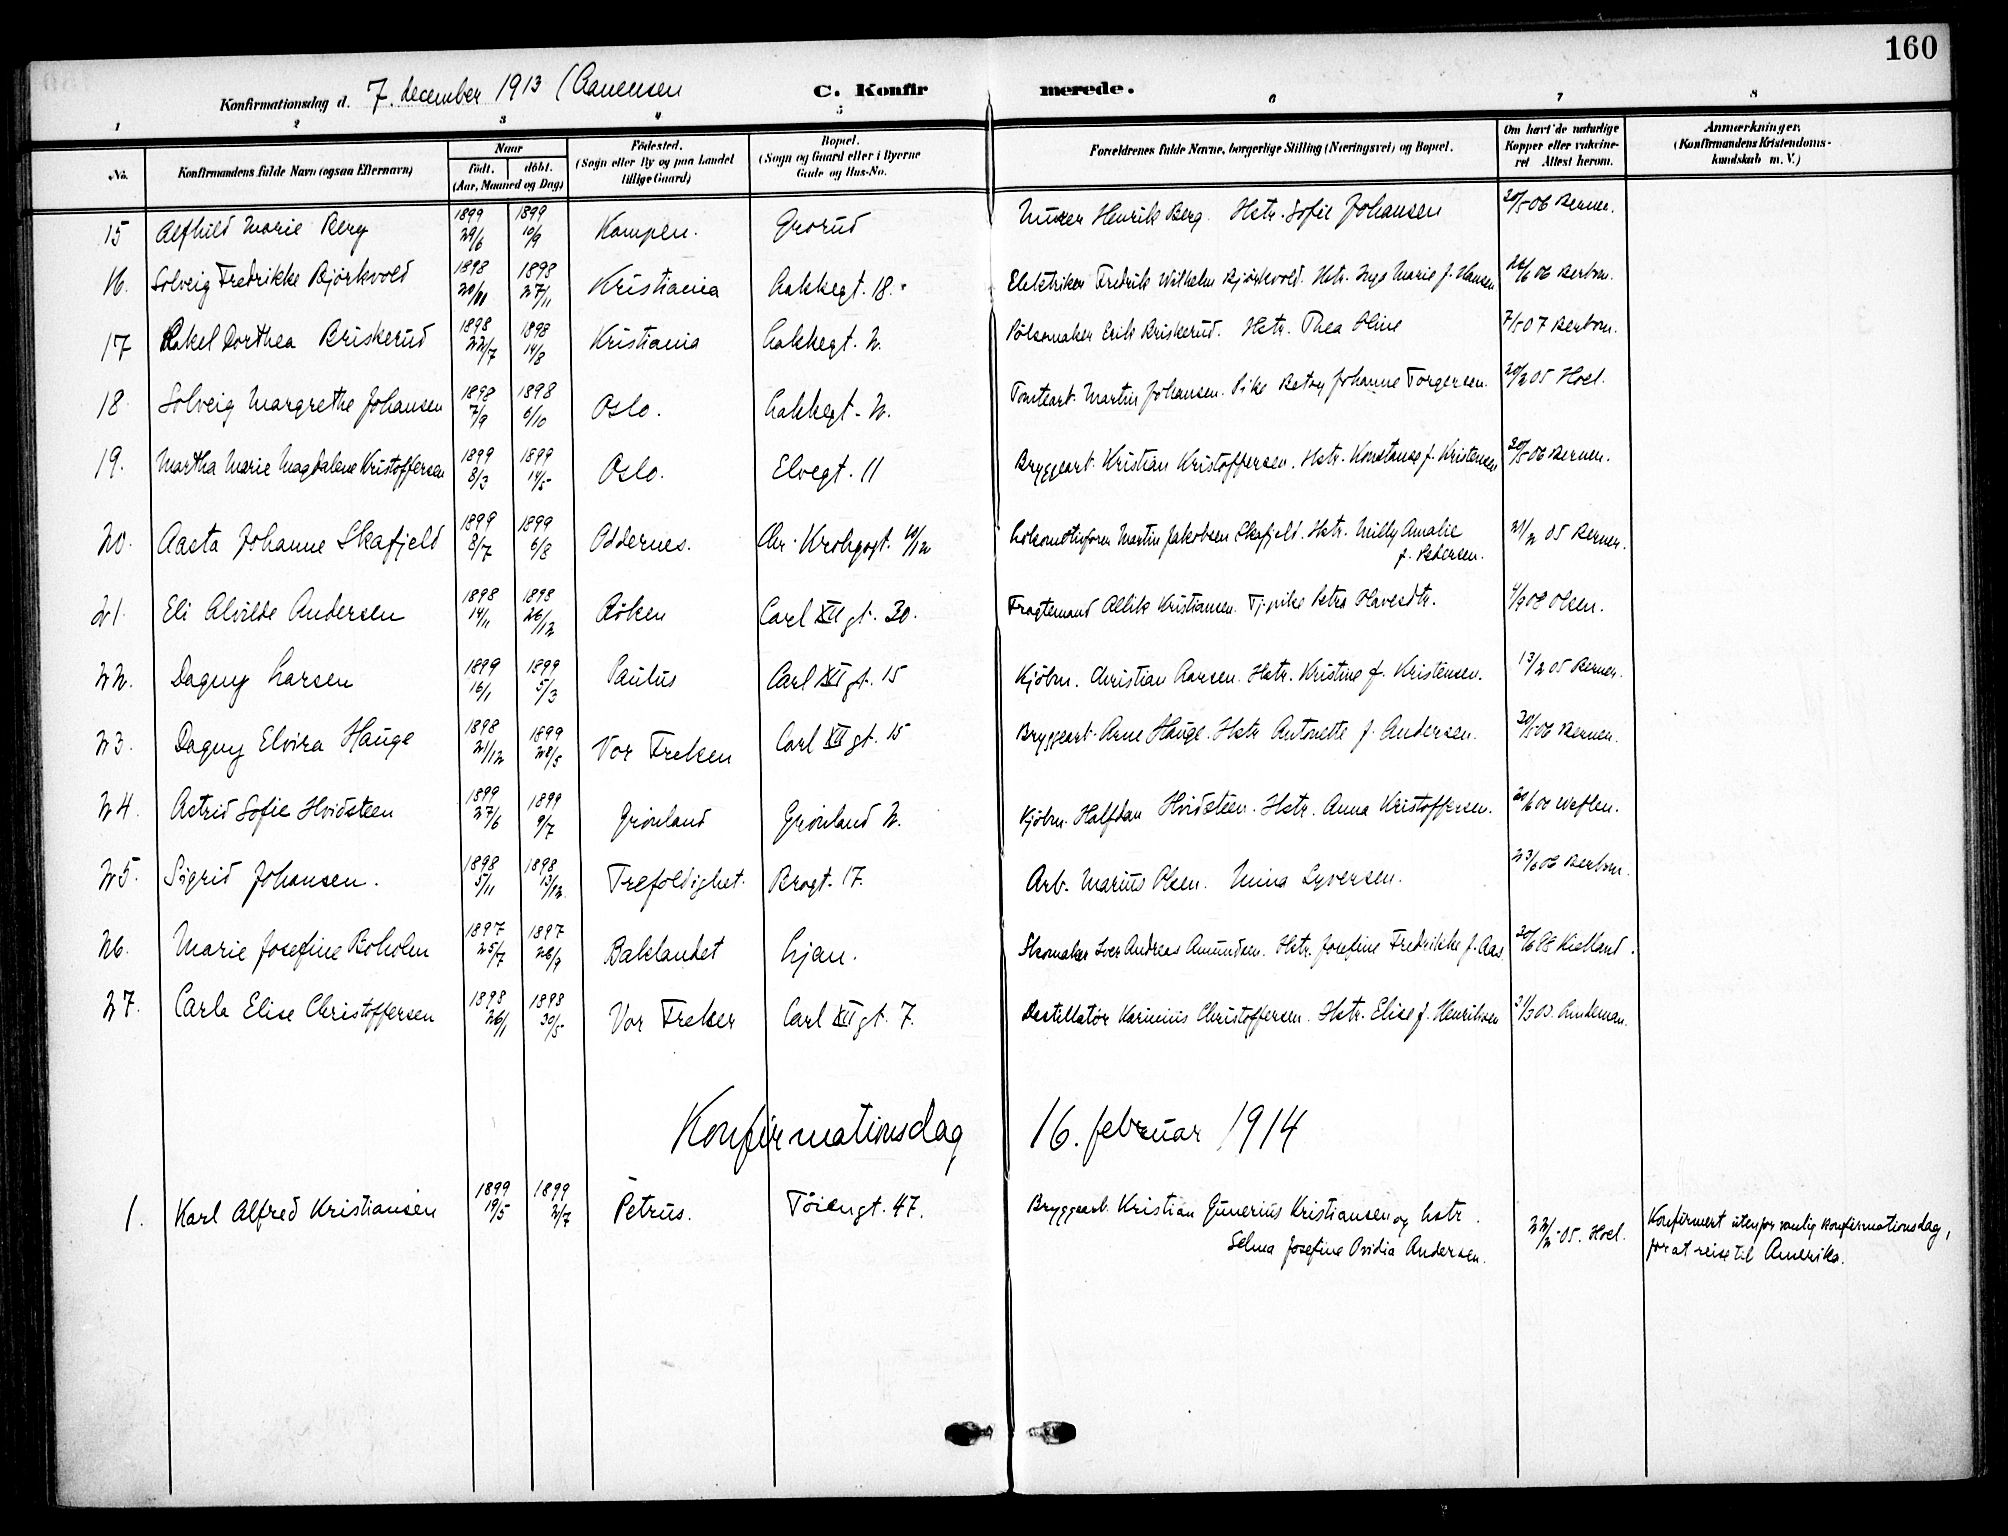 160
Konfirmationsdag d. 7. december 1913 (Aanensen C. Konfirmerede.
1 2 3 4 5 6 7 8
No. Konfirmandens fulde Navn (ogsaa Efternavn) Naar født. døbt. (Aar, Maaned og Dag) Fødested. (Sogn eller By og paa Landet tillige Gaard) Bopæl. (Sogn og Gaard eller i Byerne Gade og Hus-No. Forældrenes fulde Navne, borgerlige Stilling (Næringsvei) og Bopæl. Om havt de naturlige Kopper eller vakcineret Attest herom. Anmærkninger. (Konfirmandens Kristendomskundskab m. V.)
15 Alfhild Marie Berg 1899 29/6 1899 10/9 Kampen. Grorud Murer Henrik Berg. Hstr. Sofie Johansen 20/5 06 Berner.
16. Solveig Fredrikke Bjørkvold 1898 20/10 1898 27/11 Kristiania Lakkegt. 18. Elektriker Fredrik Wilhelm Bjørkvold. Hstr. Inga Marie f. Hansen 26/6 06 Berbom.
17 Rakel Dorthea Briskerud 1898 22/7 1898 14/8 Kristiania Lakkegt. 2. Pølsemaker Erik Briskerud. Hstr. Thea Oline 7/5 07 Berbom.
18. Solveig Margrethe Johansen 1898 7/9 1898 6/10 Oslo. Lakkegt. 2. Tomteart. Martin Johansen. Pike Betsy Johanne Torgersen. 20/2 05 Hoel.
19. Martha Marie Magdalene Kristoffersen 1899 8/3 1899 14/5 Oslo. Elvegt. 11 Bryggeart. Kristian Kristoffersen. Hstr. Konstanse f. Kristensen 30/5 06 Berner.
20. Aasta Johanne Skafjeld 1899 8/7 1899 6/8 Oddernes. Chr. Krohgsgt. Lokomotivfører Martin Jakobsen Skafjeld. Hstr. Milly Amalie f. Pedersen. 21/2 05 Berner.
21. Eli Alvilde Andersen 1898 14/11 1898 26/12 Røken Carl XII gt. 30. Fragtemand Kristiansen. Tj.pike Petra Olavesdtr. 4/9 08 Olsen.
22. Dagny Larsen 1899 16/1 1899 5/3 Paulus Carl XII gt. 15 Kjøbm. Christian Larsen. Hstr. Kristine f. Kristensen. 13/2 05 Berner.
23. Dagny Elvira Hauge 1898 21/12 1899 28/5 Vor Frelsen Carl XII gt. 15 Bryggeart. Arne Hauge. Hstr. Antonette f. Andersen. 20/5 06 Berner.
24. Astrid Sofie Hvidsteen 1899 27/6 1899 9/7 Grønland Grønland 2. Kjøbm. Halfdan Hvidsteen. Hstr. Anna Kristoffersen.
25. Sigrid Johansen. 1898 5/11 1898 13/12 Trefoldighet. Brogt. 17. Arb. Marius Olsen. Mina Syversen. 23/6 06 Berbom.
26. Marie Josefine Boholm 1897 25/7 1897 26/9 Baklandet Ljan. Skomaker Iver Andreas Amundsen. Hstr. Josefine Fredrikke f. Aas Kielland.
27. Carla Elise Christoffersen 1898 26/1 1898 30/5 Vor Frelser Carl XII gt. 7. Destillatør Karinius Christoffersen. Hstr. Elise f. Henriksen Lindeman.
Konfirmationsdag 16. februar 1914
1. Karl Alfred Kristiansen 1899 19/5 1899 2/7 Petrus. Tøiengt. 47. Bryggearb. Kristian Gunerius Kristiansen og hstr. Selma Josefine Ovidia Andersen. 22/2 05. Hoel. Konfirmert utenfor vanlig konfirmationsdag, for at reise til Amerika.